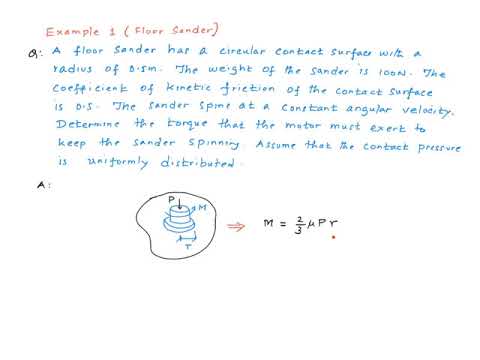 Example 1 (Floor Sander)
Q: A floor sander has a circular contact surface with a
radius of 0.5m. The weight of the sander is 100N. The
coefficient of kinetic friction of the contact surface
is 0.5. The sander spins at a constant angular velocity.
Determine the torque that the motor must exert to
keep the sander spinning. Assume that the contact pressure
is uniformly distributed.
A:
P
M
r
⇒ M = 2/3 μ P r